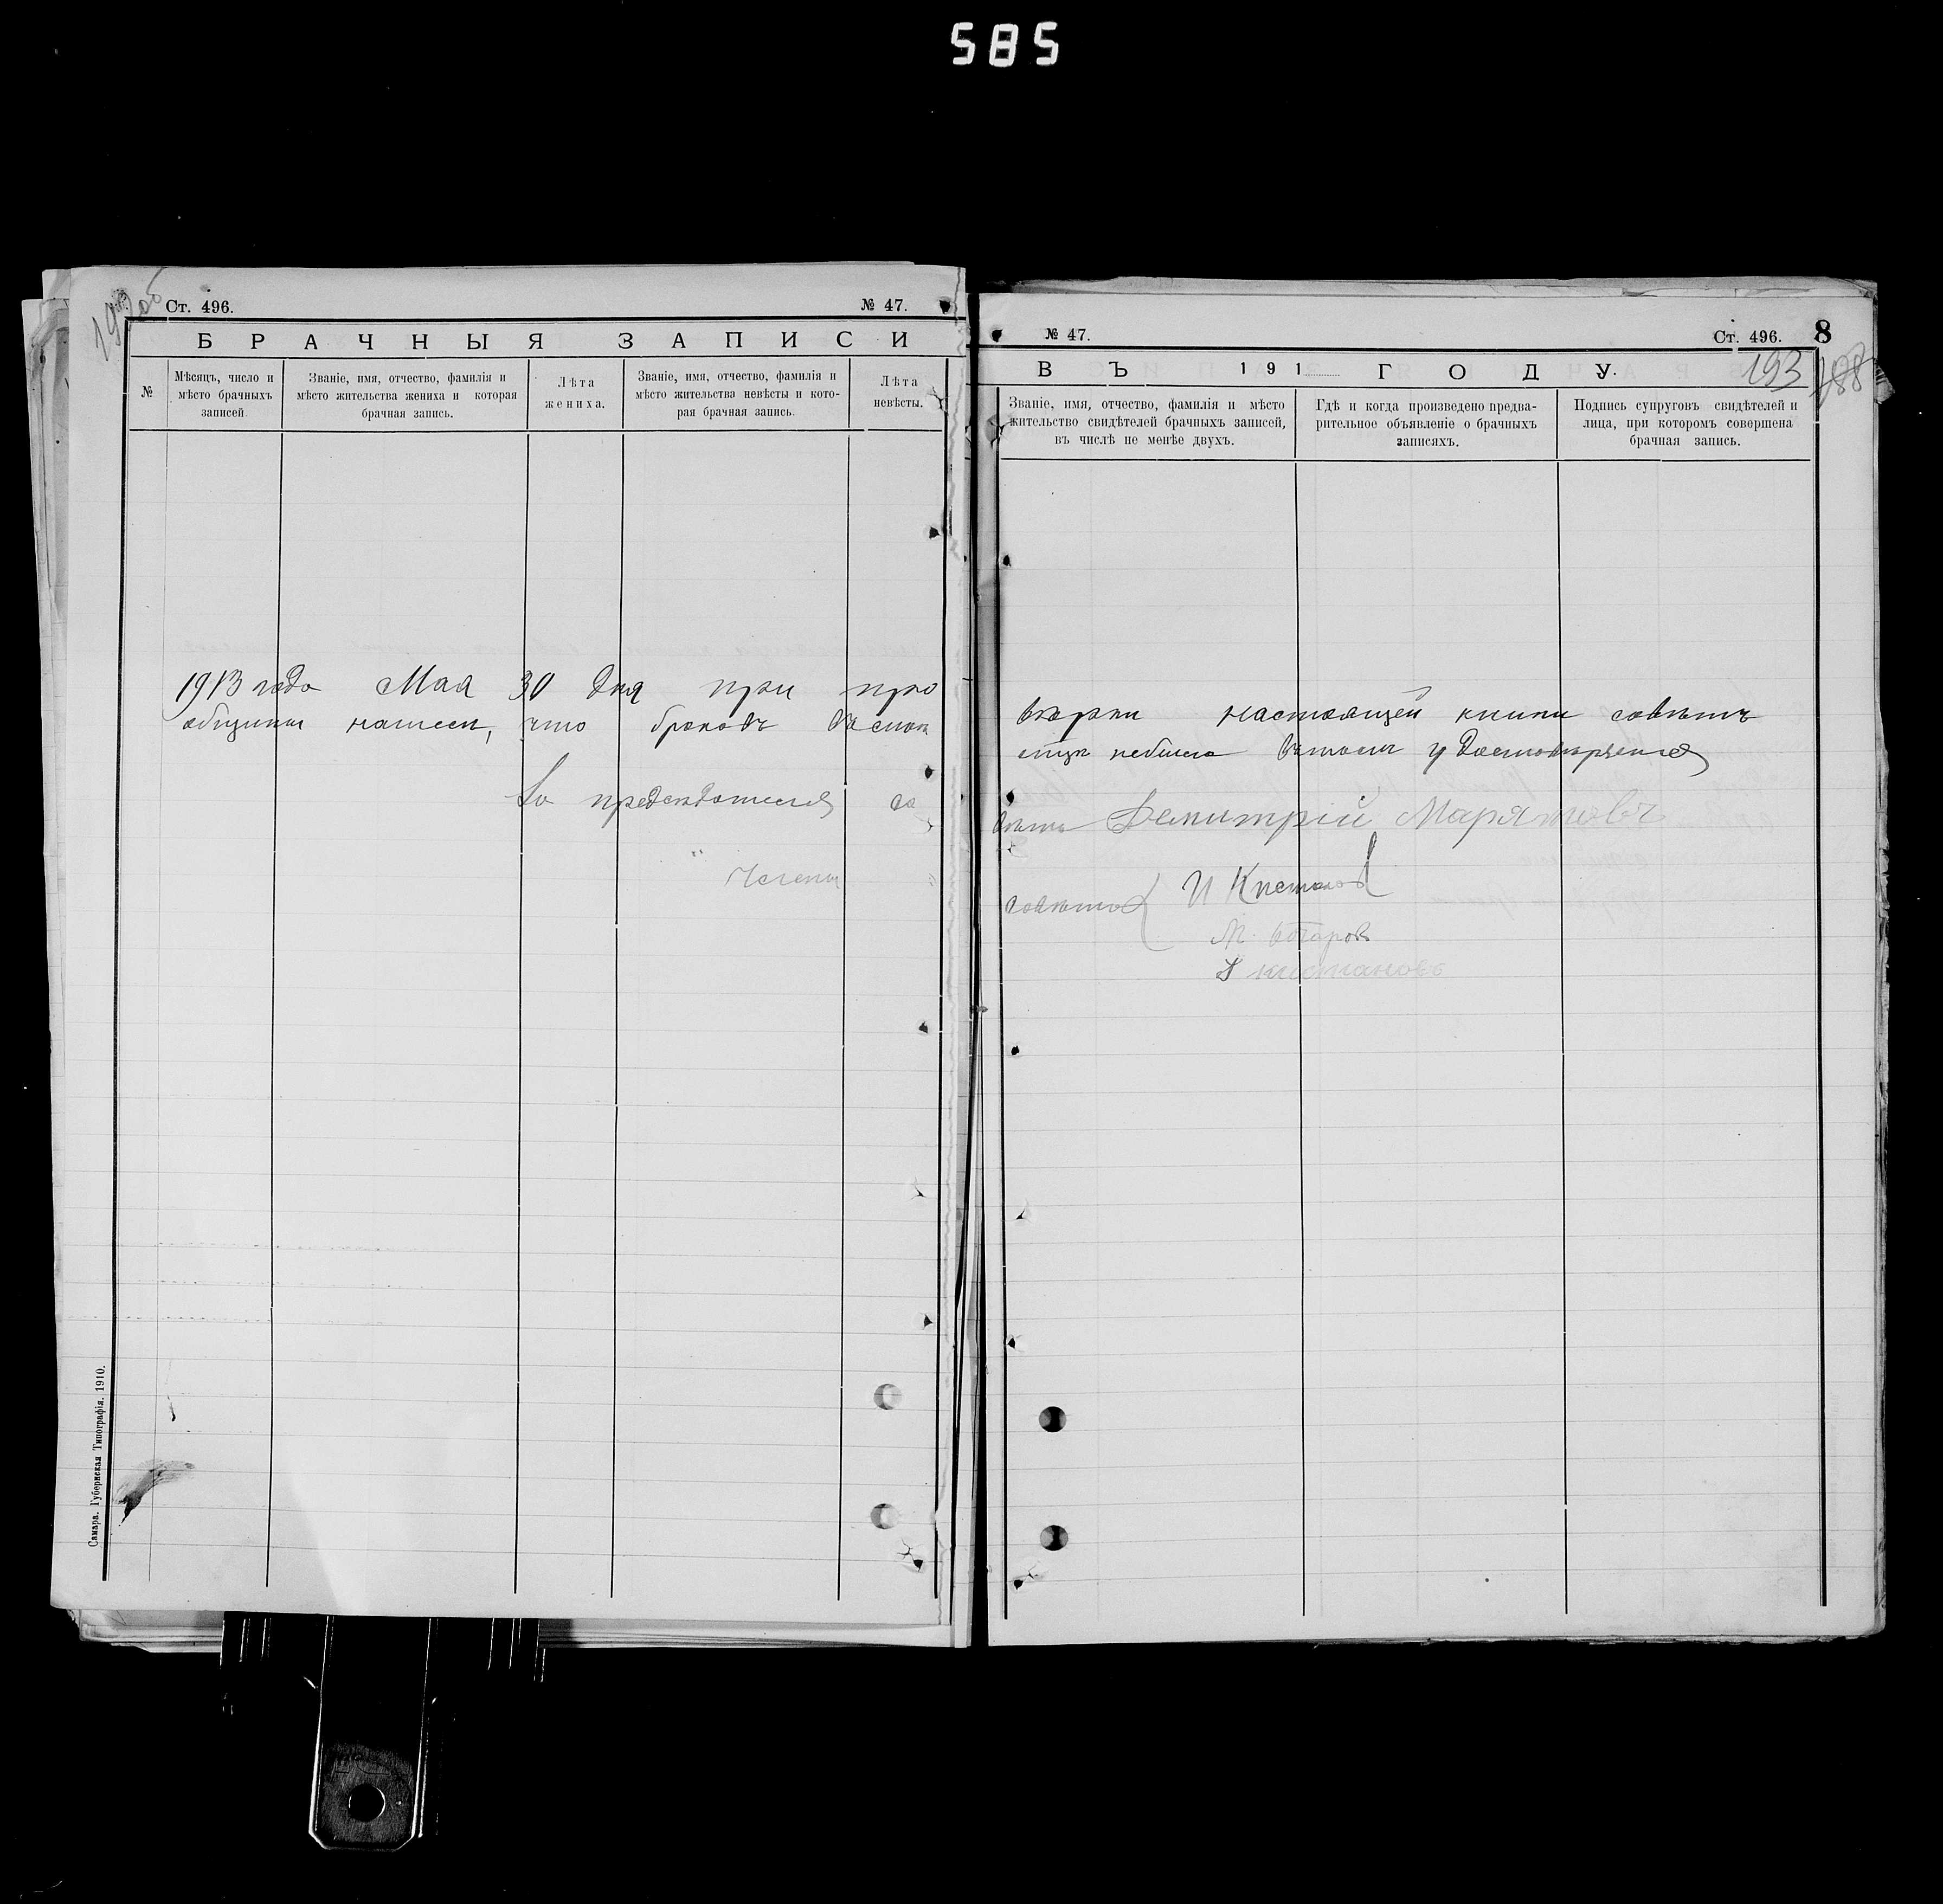 585
Ст. 496.
№ 47.
БРАЧНЫЯ ЗАПИСИ
№
Мѣсяцъ, число и
мѣсто брачныхъ
записей.
Званіе, имя, отчество, фамилія и
мѣсто жительства жениха и которая
брачная запись.
Лѣта
жениха.
Званіе, имя, отчество, фамилія и
мѣсто жительства невѣсты и кото-
рая брачная запись.
Лѣта
невѣсты.
1913 года Мая 30 дня при про
общины нашли, что браковъ
За председателя со
Члены
Самара. Губернская Типографія. 1910.
№ 47.
Ст. 496.
8
193
188
ВЪ 191 ГОДУ.
Званіе, имя, отчество, фамилія и мѣсто
жительство свидѣтелей брачныхъ записей,
въ числѣ не менѣе двухъ.
Гдѣ и когда произведено предва-
рительное объявленіе о брачныхъ
записяхъ.
Подпись супруговъ свидѣтелей и
лица, при которомъ совершена
брачная запись.
вѣрки настоящей книги совѣтъ
небыло
вѣта Демитрій Марятовъ
совѣта И Кистанов
М.
кистановъ